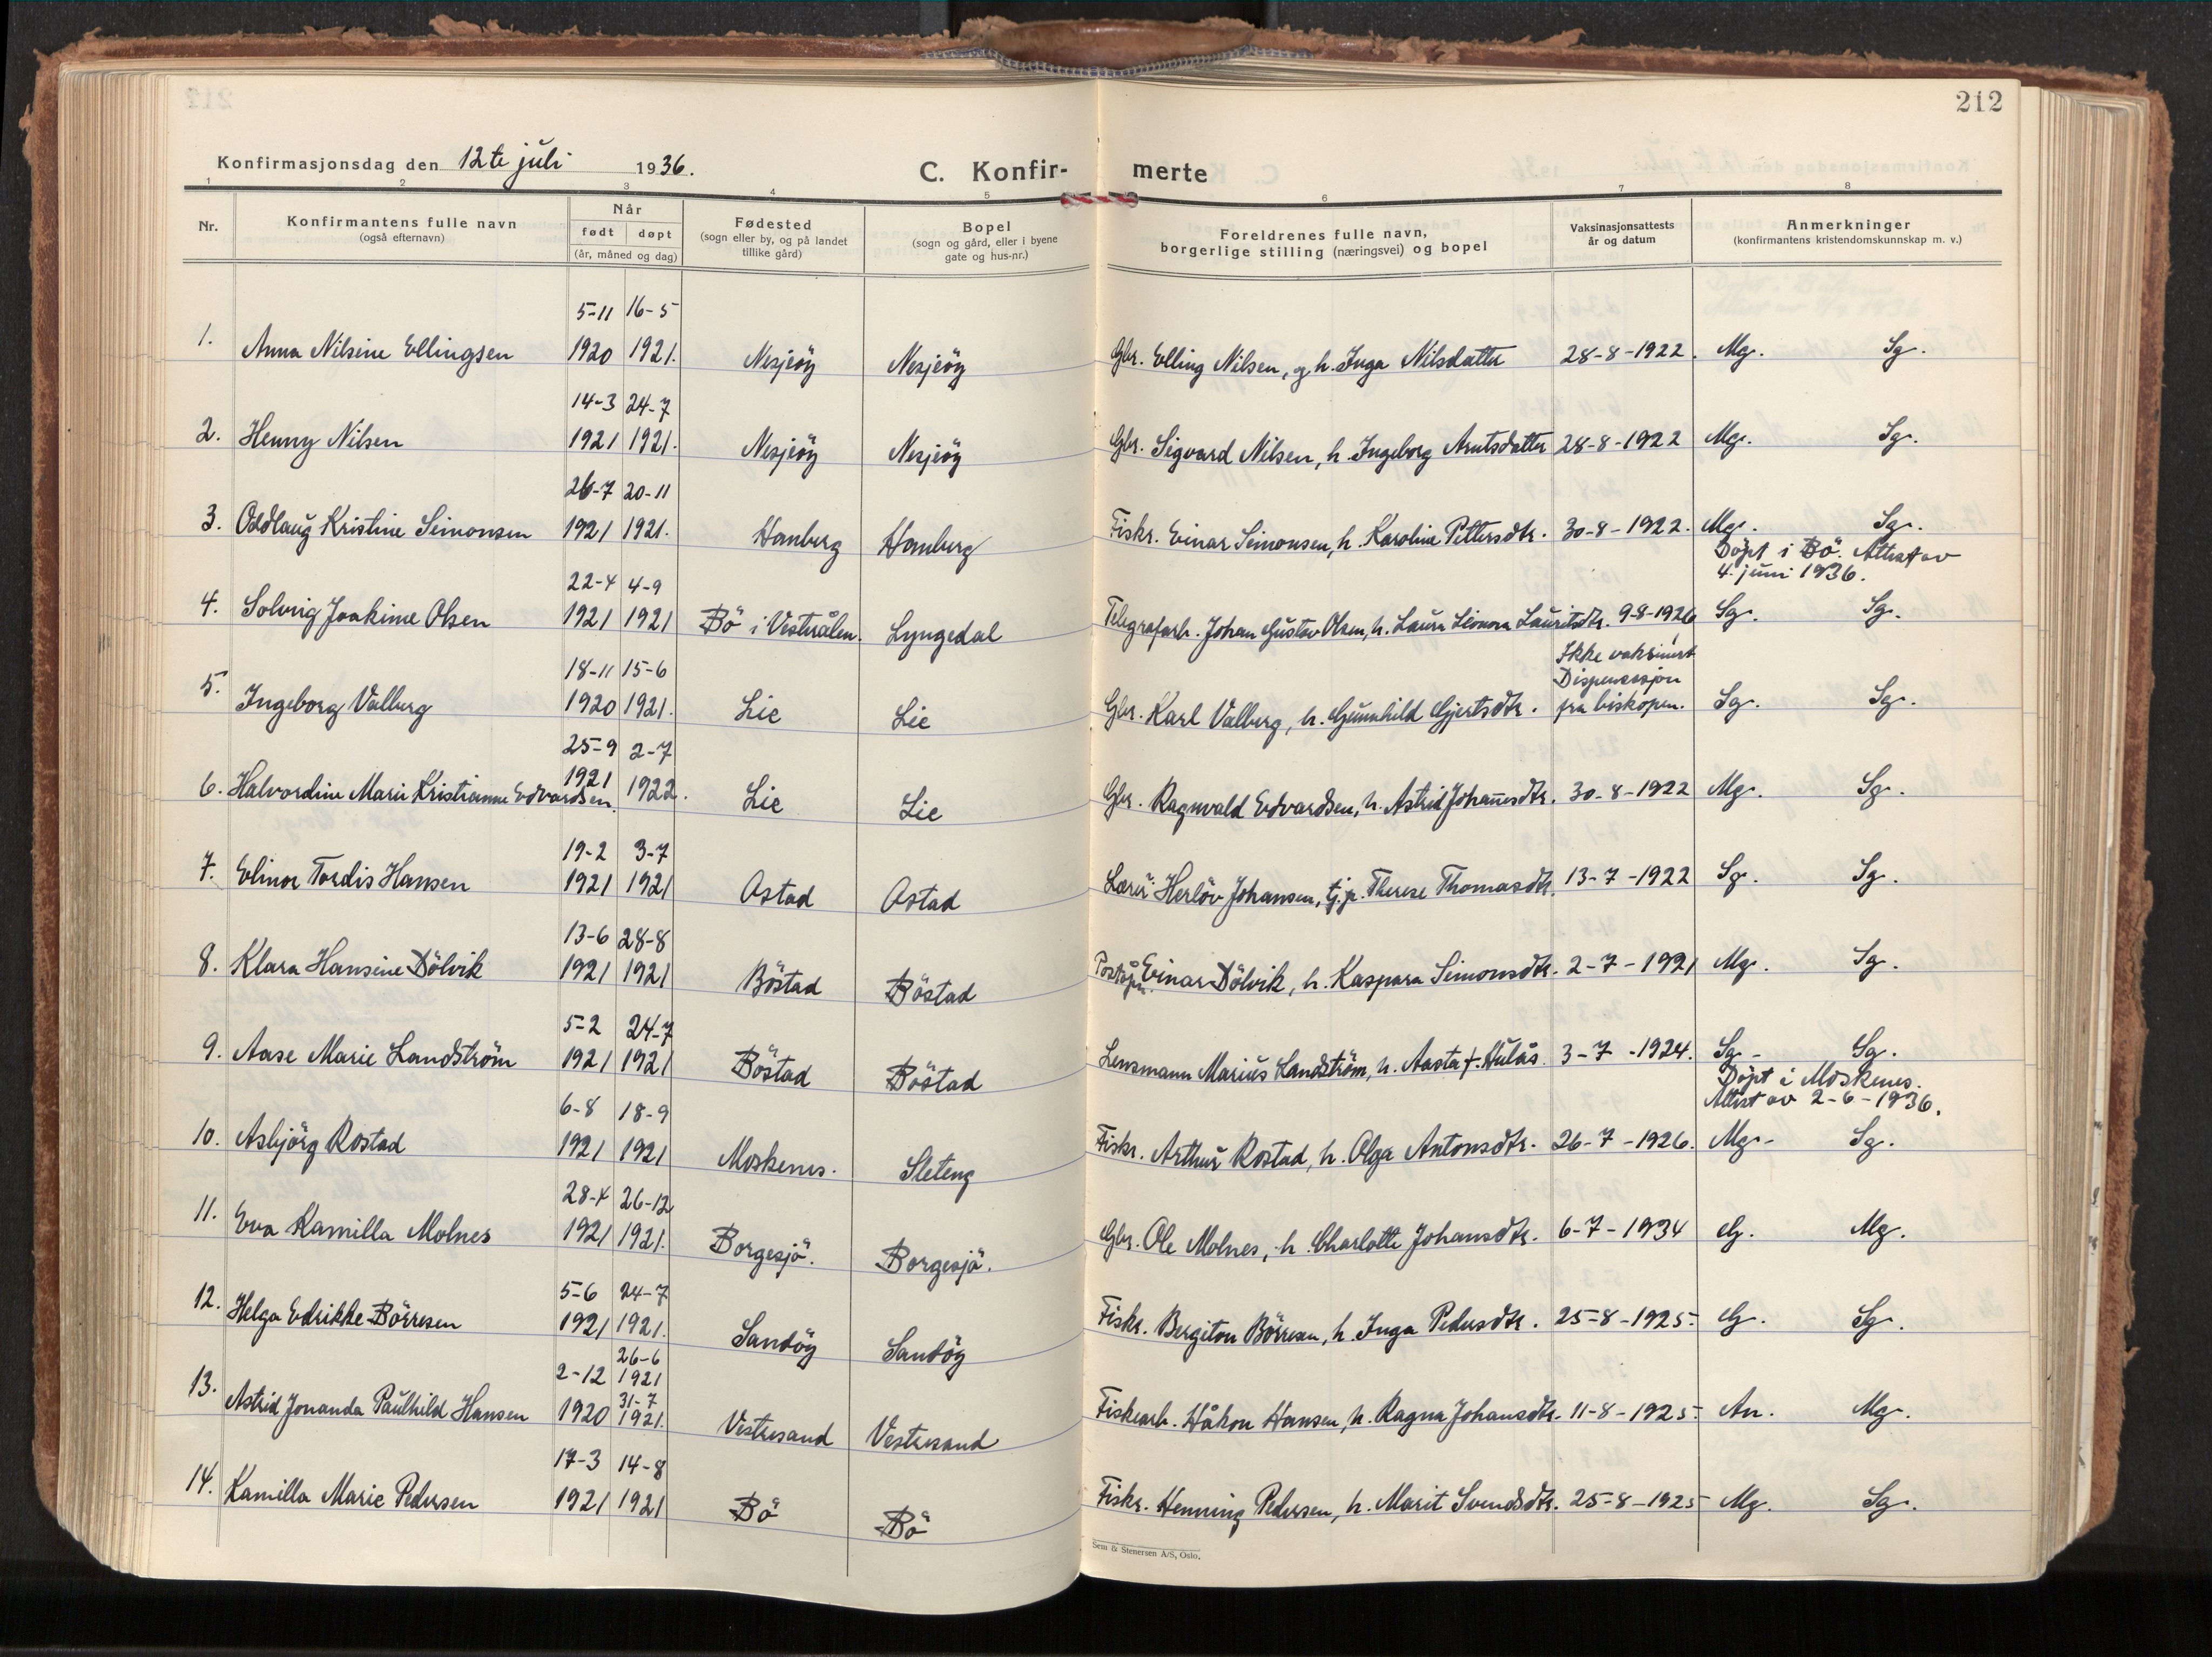 212
Konfirmasjonsdag den 12te juli 1936.
C. Konfir- merte
1 2 3 4 5 6 7 8
Nr.
Konfirmantens fulle navn
(også efternavn)
Når
født døpt
(år, måned og dag)
Fødested
(sogn eller by, og på landet
tillike gård)
Bopel
(sogn og gård, eller i byene
gate og hus-nr.)
Foreldrenes fulle navn,
borgerlige stilling (næringsvei) og bopel
Vaksinasjonsattests
år og datum
Anmerkninger
(konfirmantens kristendomskunnskap m. v.)
5-11 16-5
1. Anna Nilsine Ellingsen 1920 1921. Nesjeöy Nesjeöy Gbr. Elling Nilsen, g. h. Inga Nilsdatter 28-8-1922. Mg. Sg.
14-3 24-7
2. Henny Nilsen 1921 1921. Nesjeöy Nesjeöy Gbr. Sigvard Nilsen, h. Ingeborg Arntsdatter 28-8-1922 Mg. Sg.
26-7 20-11
3. Oddlaug Kristine Simonsen 1921 1921. Hanberg Hanberg Fiskr. Einar Simonsen, h. Karoline Pettersdtr. 30-8-1922. Mg. Sg.
Döpt i Bö. Attest av
4. juni 1936.
22-4 4-9
4. Solveig Joakime Olsen 1921 1921 Bö i Vesterålen. Lyngedal Telegrafarb. Johan Gustav Olsen, h. Laura Leonora Lauritsdtr. 9-8-1926 Sg. Sg.
18-11 15-6
Ikke vaksinert
Dispensasjon
5. Ingeborg Valberg 1920 1921. Lie Lie Gbr. Karl Valberg, h. Gunnhild Gjertsdtr. fra biskopen. Sg. Sg.
25-9 2-7
6. Halvordine Marie Kristianne Edvardsen 1921 1922. Lie Lie Gbr. Ragnvald Edvardsen, h. Astrid Johannesdtr. 30-8-1922 Mg. Sg.
19-2 3-7
7. Elinor Tordis Hansen 1921 1921 Ostad Ostad Lærer Herlöv Johansen, tj. p. Therese Thomasdtr. 13-7-1922 Sg. Sg.
13-6 28-8
8. Klara Hansine Dölvik 1921 1921 Böstad Böstad Poståpn. Einar Dölvik, h. Kaspara Simonsdtr. 2-7-1921 Mg. Sg.
5-2 24-7
9. Aase Marie Landström 1921 1921 Böstad Böstad Lensmann Marius Landström, h. Aasta f. Hulås. 3-7-1924. Sg- Sg.
Döpt i Moskenes.
Attest av 2-6-1936.
6-8 18-9
10. Asbjörg Rostad 1921 1921 Moskenes. Sleteng Fiskr. Arthur Rostad, h. Olga Antonsdtr. 26-7-1926. Mg- Sg.
28-4 26-12
11. Eva Kamilla Molnes 1921 1921. Borgesjö. Borgesjö. Gbr. Ole Molnes, h. Charlotte Johansdtr. 6-7-1934 G. Mg.
5-6 24-7
12. Helga Edrikke Börresen 1921 1921. Sandöy Sandöy Fiskr. Bergiton Börresen, h. Inga Pedersdtr. 25-8-1925. G. Sg.
26-6
2-12 1921
31-7
13. Astrid Jonanda Paulhild Hansen 1920 1921. Vestresand Vestresand Fiskearb. Håkon Hansen, h. Ragna Johansdtr. 11-8-1925. An. Mg.
17-3 14-8
14. Kamilla Marie Pedersen 1921 1921 Bö Bö Fiskr. Henning Pedersen, h. Marit Svendsdtr. 25-8-1925 Mg. Sg.
Sem & Stenersen A/S, Oslo.